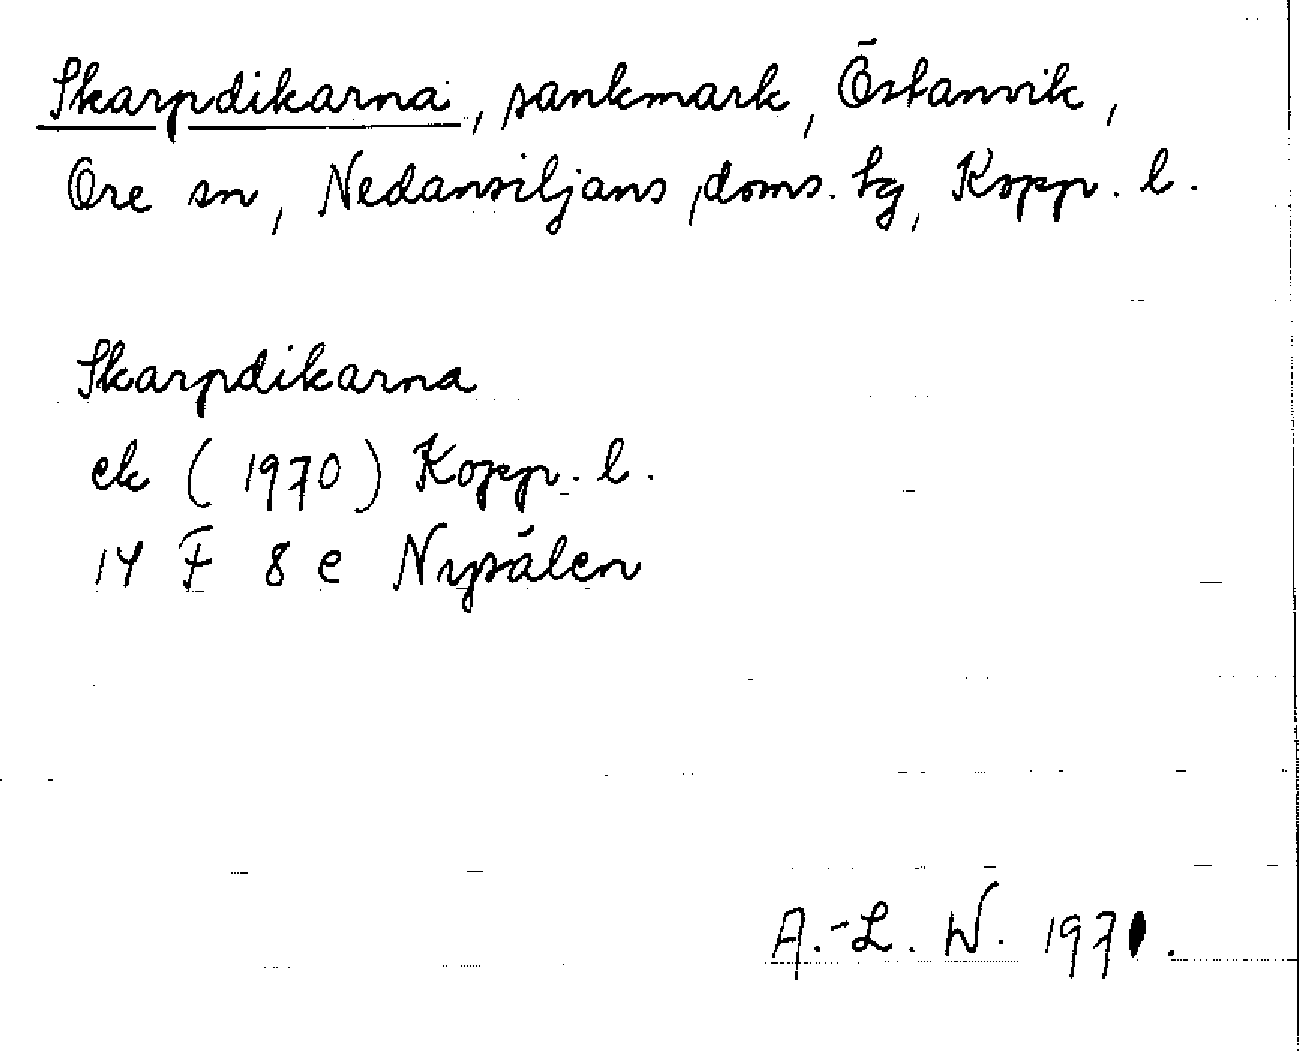 Skarpdikarna, sankmark, Östanvik,
Ore sn, Nedansiljans doms. tg, Kopp. l.
Skarpdikarna
ek (1970) Kopp. l.
14 F 8 e Nysälen
A.-L. W. 1971.